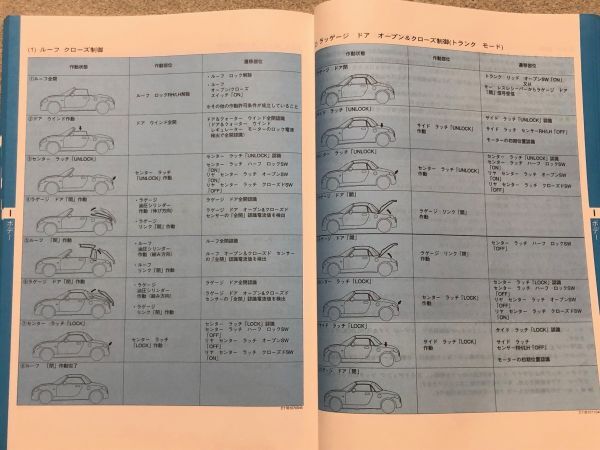 (1) ルーフ クローズ制御
作動状態
作動部位
遷移部位
①ルーフ全開
ルーフ ロックRH/LH解除
・ルーフ ロック解除
・ルーフ
オープン/クローズ
スイッチ「ON」
※その他の作動許可条件が成立していること
②ドア ウインド作動
ドア ウインド全開
ドア&クォーター ウインド全開認識
(ドア&クォーター ウインド
レギュレーター モーターのロック電流
検出で全開認識)
③センター ラッチ「UNLOCK」
センター ラッチ
「UNLOCK」作動
センター ラッチ「UNLOCK」認識
センター ラッチ ハーフ ロックSW
「ON」
リヤ センター ラッチ オープンSW
「ON」
リヤ センター ラッチ クローズドSW
「OFF」
④ラゲージ ドア「開」作動
・ラゲージ
油圧シリンダー
作動(伸び方向)
・ラゲージ
リンク「開」作動
ラゲージ ドア全開認識
ラゲージ ドア オープン&クローズド
センサーの「全開」認識電流値を検出
⑤ルーフ「閉」作動
・ルーフ
油圧シリンダー
作動(縮み方向)
・ルーフ
リンク「閉」作動
ルーフ全閉認識
ルーフ オープン&クローズド センサー
の「全閉」認識電流値を検出
⑥ラゲージ ドア「閉」作動
・ラゲージ
油圧シリンダー
作動(縮み方向)
・ラゲージ
リンク「閉」作動
ラゲージ ドア全閉認識
ラゲージ ドア オープン&クローズド
センサーの「全閉」認識電流値を検出
⑦センター ラッチ「LOCK」
センター ラッチ
「LOCK」作動
センター ラッチ「LOCK」認識
センター ラッチ ハーフ ロックSW
「OFF」
リヤ センター ラッチ オープンSW
「OFF」
リヤ センター ラッチ クローズドSW
「ON」
⑧ルーフ 「閉」作動完了
ラッゲージ ドア オープン&クローズ制御(トランク モード)
作動状態
作動部位
遷移部位
ゲージ ドア閉
トランク リッド オープンSW「ON」
又は
キー レスレシーバーからラゲージ ドア
「開」信号受信
イド ラッチ「UNLOCK」
サイド ラッチ「UNLOCK」
作動
サイド ラッチ「UNLOCK」認識
サイド ラッチ センサーRH/LH「OFF」
モーターの初期位置認識
ンター ラッチ「UNLOCK」
センター ラッチ「UNLOCK」
作動
センター ラッチ「UNLOCK」認識
センター ラッチ ハーフ ロックSW
「ON」
リヤ センター ラッチ オープンSW
「ON」
リヤ センター ラッチ クローズドSW
「OFF」
ゲージ ドア「開」
ラゲージ リンク「開」作動
ゲージ ドア「閉」
ラゲージ リンク「閉」作動
センター ラッチ ハーフ ロックSW
「OFF」
ンター ラッチ「LOCK」
センター ラッチ「LOCK」
作動
センター ラッチ「LOCK」認識
センター ラッチ ハーフ ロックSW
「OFF」
リヤ センター ラッチ オープンSW
「OFF」
リヤ センター ラッチ クローズドSW
「ON」
イド ラッチ「LOCK」
サイド ラッチ「LOCK」
作動
サイド ラッチ「LOCK」認識
サイド ラッチ
センサーRH/LH「OFF」
モーターの初期位置認識
ゲージ ドア「閉」
I
ボデー
I
ボデー